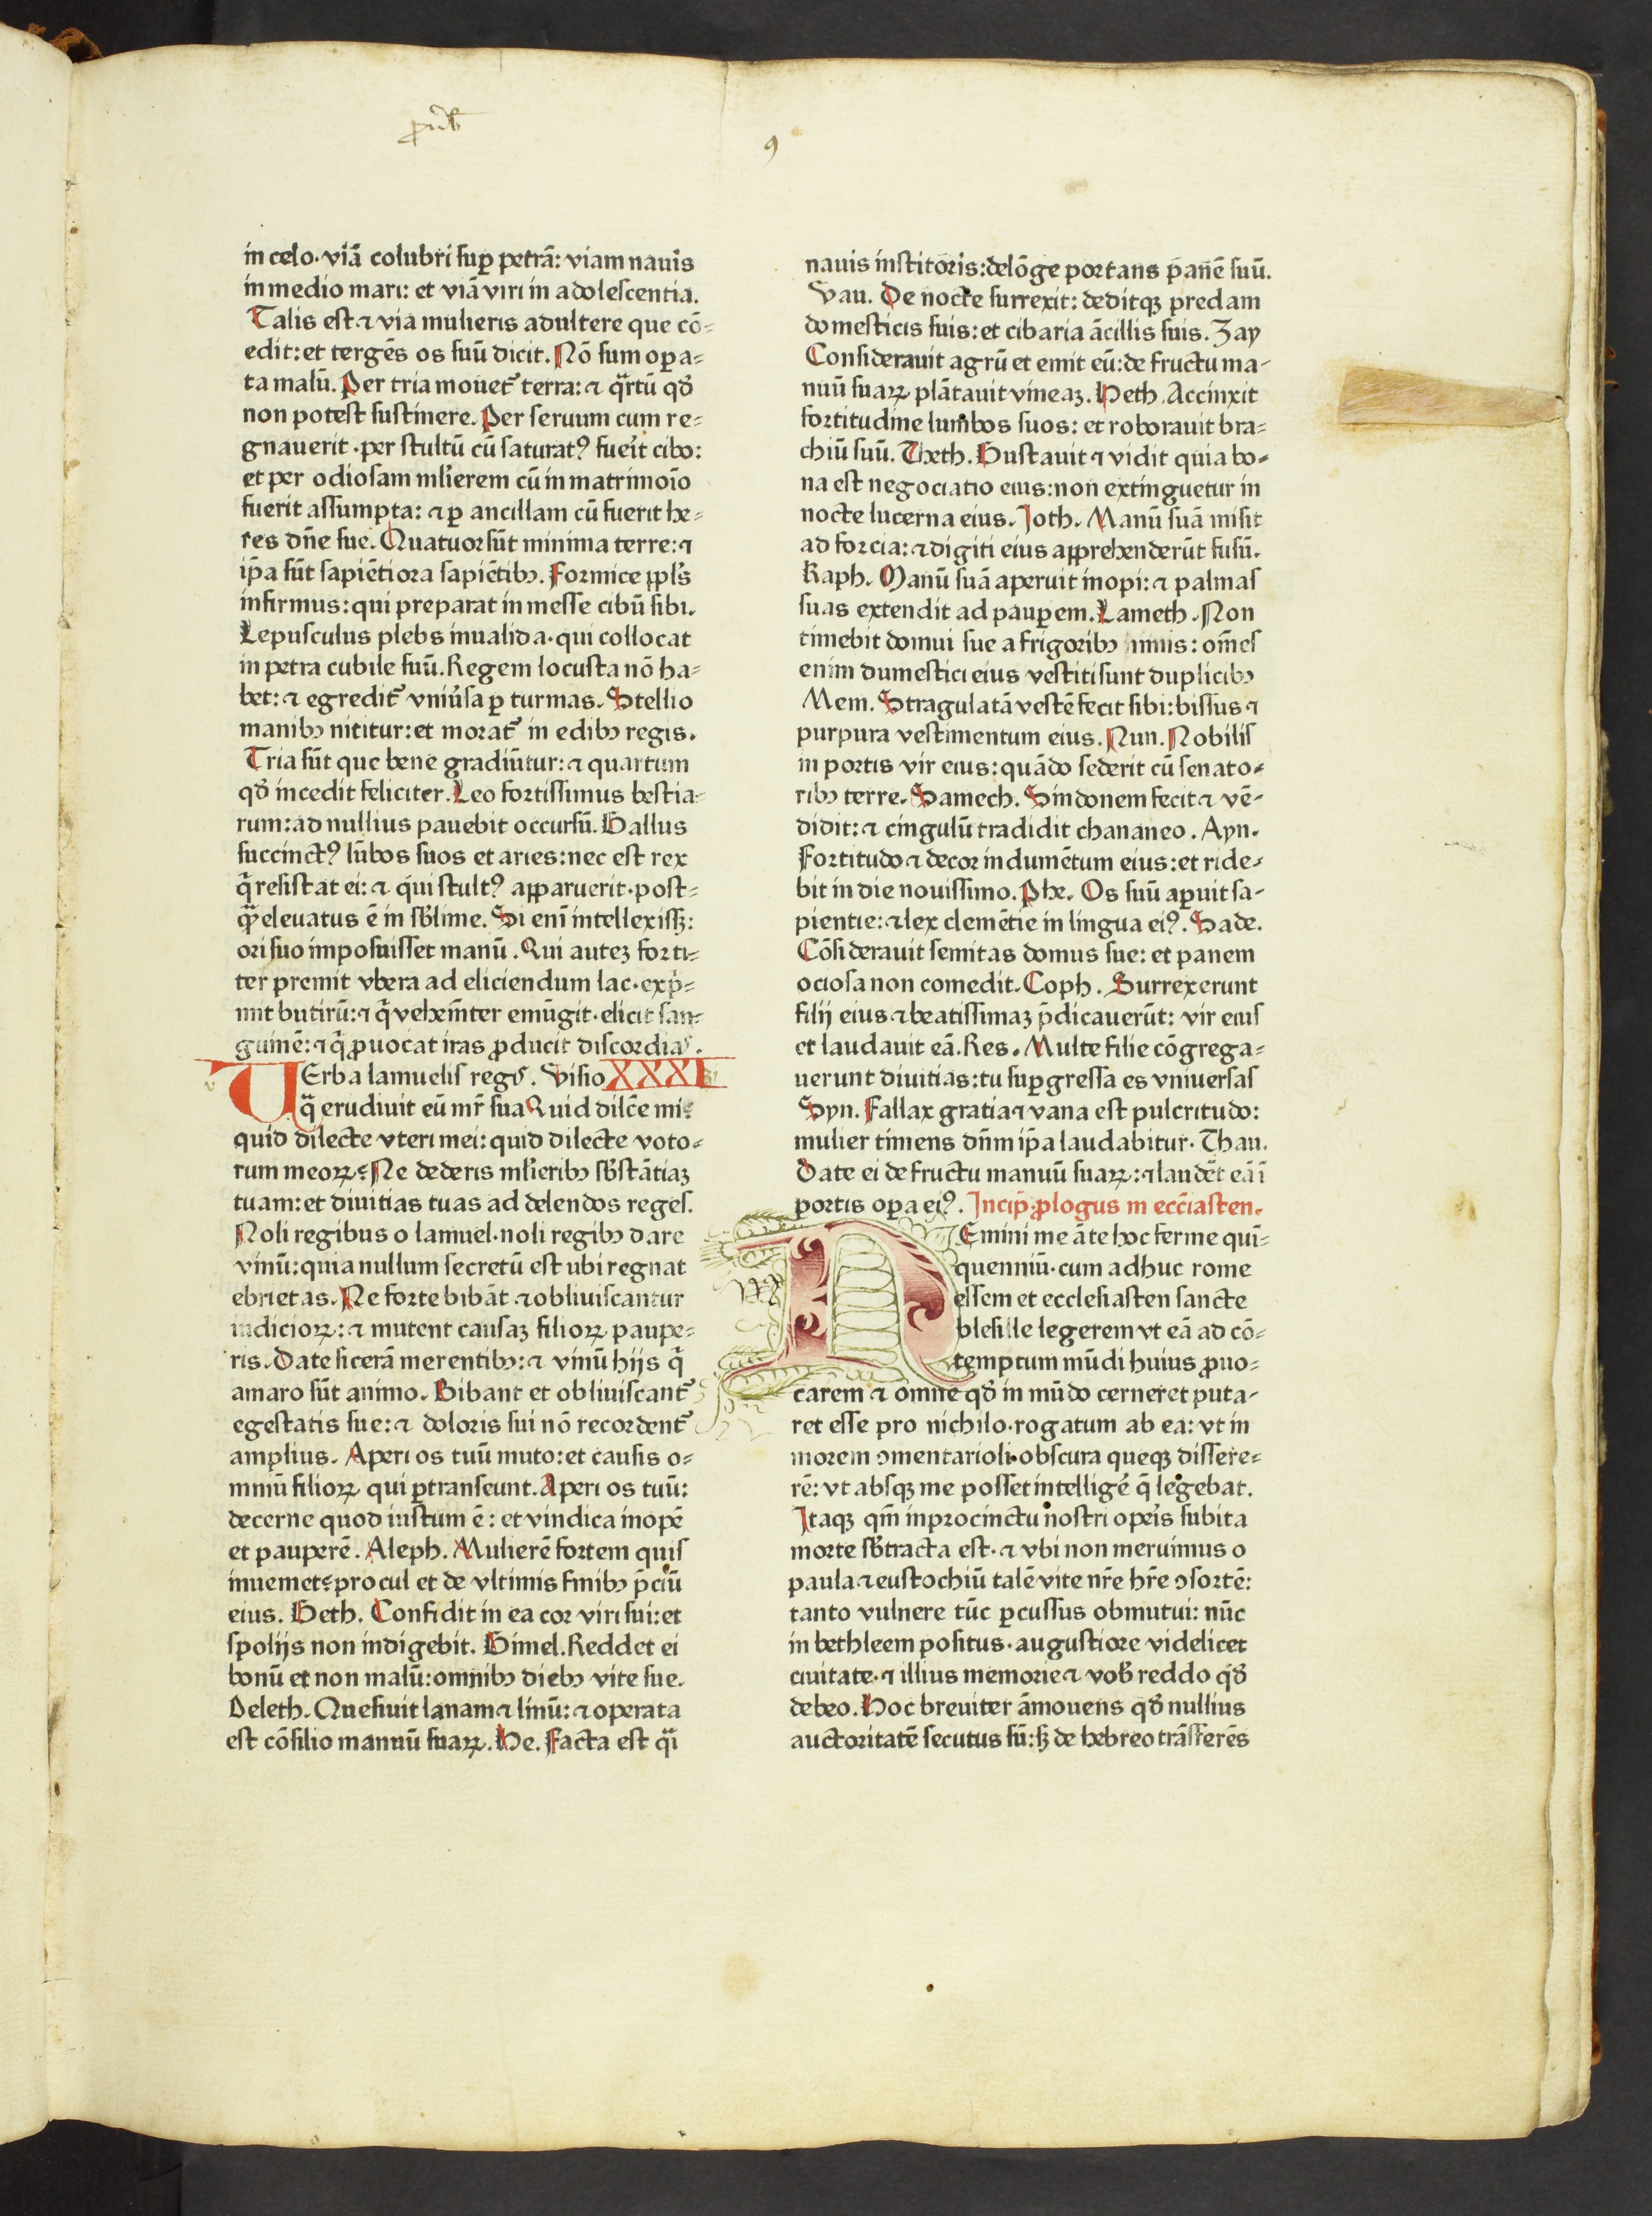 ꝓuerb
9
in celo·viā colubri suꝑ petrā: viam nauis
in medio mari: et viā viri in adolescentia.
Talis est ⁊ via mulieris adultere que cō⸗
edit: et tergēs os suū dicit. Nō sum oꝑa⸗
ta malū. Per tria mouet᷑ terra: ⁊ qͣrtū qd̕
non potest sustinere. Per seruum cum re⸗
gnauerit ·per stultū cū saturatꝰ fueit cibo:
et per odiosam ml̕ierem cū in matrimoīo
fuerit assumpta: ⁊ ꝑ ancillam cū fuerit he⸗
res dn̄e sue. Quatuor sūt minima terre: ⁊
ip̄a sūt sapiētiora sapiētibꝰ. Formice ppl̕s
infirmus: qui preparat in messe cibū sibi.
Lepusculus plebs inualida·qui collocat
in petra cubile suū. Regem locusta nō ha⸗
bet: ⁊ egredit᷑ vniu̕sa ꝑ turmas. Stellio
manibꝰ nititur: et morat᷑ in edibꝰ regis.
Tria sūt que bene gradiūtur: ⁊ quartum
qd̕ incedit feliciter. Leo fortissimus bestia⸗
rum: ad nullius pauebit occursū. Gallus
succinctꝰ lūbos suos et aries: nec est rex
qͣ resistat ei: ⁊ qui stultꝰ apparuerit·post⸗
qͣ eleuatus ē in sb̕lime. Si enī intellexissꝫ:
ori suo imposuisset manū. Qui autēꝫ forti⸗
ter premit vbera ad eliciendum lac·exp̄⸗
mit butirū: ⁊ qͥ vehem̄ter emūgit·elicit san⸗
guinē: ⁊ qͥ ꝓuocat iras ꝓducit discordias.
VErba lamuelis regꝭ. Visio XXXI
qͣ erudiuit eū mr̄ sua Quid dilc̄e mi⸗
quid dilecte vteri mei: quid dilecte voto⸗
rum meoꝝ: Ne dederis ml̕ieribꝰ sb̕stātiaꝫ
tuam: et diuitias tuas ad delendos reges.
Noli regibus o lamuel·noli regibꝰ dare
vinū: quia nullum secretū est ubi regnat
ebrietas. Ne forte bibāt ⁊ obliuiscantur
iudicioꝝ: ⁊ mutent causaꝫ filioꝝ paupe⸗
ris. Date sicerā merentibꝰ: ⁊ vinū hijs qͥ
amaro sūt animo. Bibant et obliuiscant᷑
egestatis sue: ⁊ doloris sui nō recordent᷑
amplius. Aperi os tuū muto: et causis o⸗
mniū filioꝝ qui ꝑtranseunt. Aperi os tuū:
decerne quod iustum ē: et vindica inopē
et pauperē. Aleph. Mulierē fortem quis
inueniet: procul et de vltimis finibꝰ p̄ciū
eius. Beth. Confidit in ea cor viri sui: et
spolijs non indigebit. Gimel. Reddet ei
bonū et non malū: omnibꝰ diebꝰ vite sue.
Deleth. Quesiuit lanam ⁊ linū: ⁊ operata
est cōsilio manuū suaꝝ. He. Facta est qͣi
nauis institoris: delōge portans panē suū.
Vau. De nocte surrexit: deditqꝫ predam
domesticis suis: et cibaria ācillis suis. Zay
Considerauit agrū et emit eū: de fructu ma⸗
nuū suaꝝ plātauit vineaꝫ. Heth. Accinxit
fortitudine lumbos suos: et roborauit bra⸗
chiū suū. Theth. Gustauit ⁊ vidit quia bo⸗
na est negociatio eius: non extinguetur in
nocte lucerna eius. Joth. Manū suā misit
ad forcia: ⁊ digiti eius apprehenderūt fusū.
Kaph. Manū suā aperuit inopi: ⁊ palmas
suas extendit ad pauꝑem. Lameth. Non
timebit domui sue a frigoribꝰ niuis: om̄es
enim dumestici eius vestiti sunt duplicibꝰ
Mem. Stragulatā vestē fecit sibi: bissus ⁊
purpura vestimentum eius. Nun. Nobilis
in portis vir eius: quādo sederit cū senato⸗
ribꝰ terre. Samech. Sindonem fecit ⁊ vē⸗
didit: ⁊ cingulū tradidit chananeo. Ayn.
Fortitudo ⁊ decor indumētum eius: et ride⸗
bit in die nouissimo. Phe. Os suū aꝑuit sa⸗
pientie: ⁊ lex clemētie in lingua eiꝰ. Sade.
Cōsiderauit semitas domus sue: et panem
ociosa non comedit. Coph. Surrexerunt
filij eius ⁊ beatissimaꝫ p̄dicauerūt: vir eius
et laudauit eā. Res. Multe filie cōgrega⸗
uerunt diuitias: tu suꝑgressa es vniuersas
Syn. Fallax gratia ⁊ vana est pulcritudo:
mulier timens dn̄m ip̄a laudabitur. Thau.
Date ei de fructu manuū suaꝝ: ⁊ laudēt eā ī
portis oꝑa eiꝰ. Incip̄ ꝓlogus in ecc̄iasten.
REmini me āte hoc ferme qui⸗
quenniū·cum adhuc rome
essem et ecclesiasten sancte
blesille legerem vt eā ad cō⸗
temptum mūdi huius ꝓuo⸗
carem ⁊ omne qd̕ in mūdo cerneret puta⸗
ret esse pro nichilo·rogatum ab ea: vt in
morem ↄmentarioli·obscura queqꝫ dissere⸗
rē: vt absqꝫ me posset intelligē q̄ legebat.
Itaqꝫ qm̄ in procinctu nostri opeis subita
morte sb̕tracta est·⁊ vbi non meruimus o
paula ⁊ eustochiū talē vite nr̄e hr̄e ↄsortē:
tanto vulnere tūc ꝑcussus obmutui: nūc
in bethleem positus·augustiore videlicet
ciuitate·⁊ illius memorie ⁊ vob̕ reddo qd̕
debeo. Hoc breuiter āmouens qd̕ nullius
auctoritatē secutus sū: sꝫ de hebreo trāsferēs